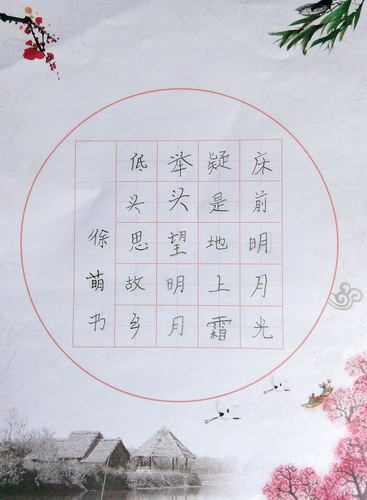 床前明月光
疑是地上霜
举头望明月
低头思故乡
徐萌书